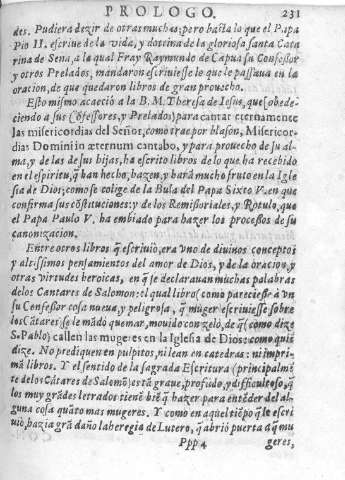 PROLOGO. 231
des. Pudiera dezir de otras muchas; pero basta lo que el Papa
Pio II. escriue de la vida, y dotrina de la gloriosa santa Cata
rina de Sena, a la qual Fray Raymundo de Capua su Confessor
y otros Prelados, mandaron escriuiesse lo que le passaua en la
oracion, de que quedaron libros de gran prouecho.
Esto mismo acaeciò a la B. M. Theresa de Iesus, que (obede-
ciendo a sus Cõfessores, y Prelados) para cantar eternamente
las misericordias del Señor, como trae por blason, Misericor-
dias Domini in æternum cantabo, y para prouecho de su al-
ma, y de las de sus hijas, ha escrito libros de lo que ha recebido
en el espiritu, q̃ han hecho, hazen, y harà mucho fruto en la Igle
sia de Dios; como se colige de la Bula del Papa Sixto V. en que
confirma sus cõstituciones: y de los Remissoriales, y Rotulo, que
el Papa Paulo V. ha embiado para hazer los processos de su
canonizacion.
Entre otros libros q̃ escriuio, era vno de diuinos conceptos
y altissimos pensamientos del amor de Dios, y de la oracion, y
otras virtudes heroicas, en q̃ se declarauan muchas palabras
de los Cantares de Salomon: el qual libro (como pareciesse a vn
su Confessor cosa nueua, y peligrosa, q̃ muger escriuiesse sobre
los Cãtares) se le mãdò quemar, mouido con zelo, de q̃ (como dize
S. Pablo) callen las mugeres en la Iglesia de Dios: como quiẽ
dize. No prediquen en pulpitos, ni lean en catedras: ni impri-
mã libros. Y el sentido de la sagrada Escritura (principalmẽ
te de los Cãtares de Salomõ) està graue, profũdo, y dificultoso, q̃
los muy grãdes letrados tienẽ biẽ q̃ hazer para entẽder del al-
guna cosa quãto mas mugeres. Y como en aquel tiẽpo q̃ le escri
uio, hazia grã daño la heregia de Lutero, q̃ abriò puerta a q̃ mu
Ppp 4 geres,